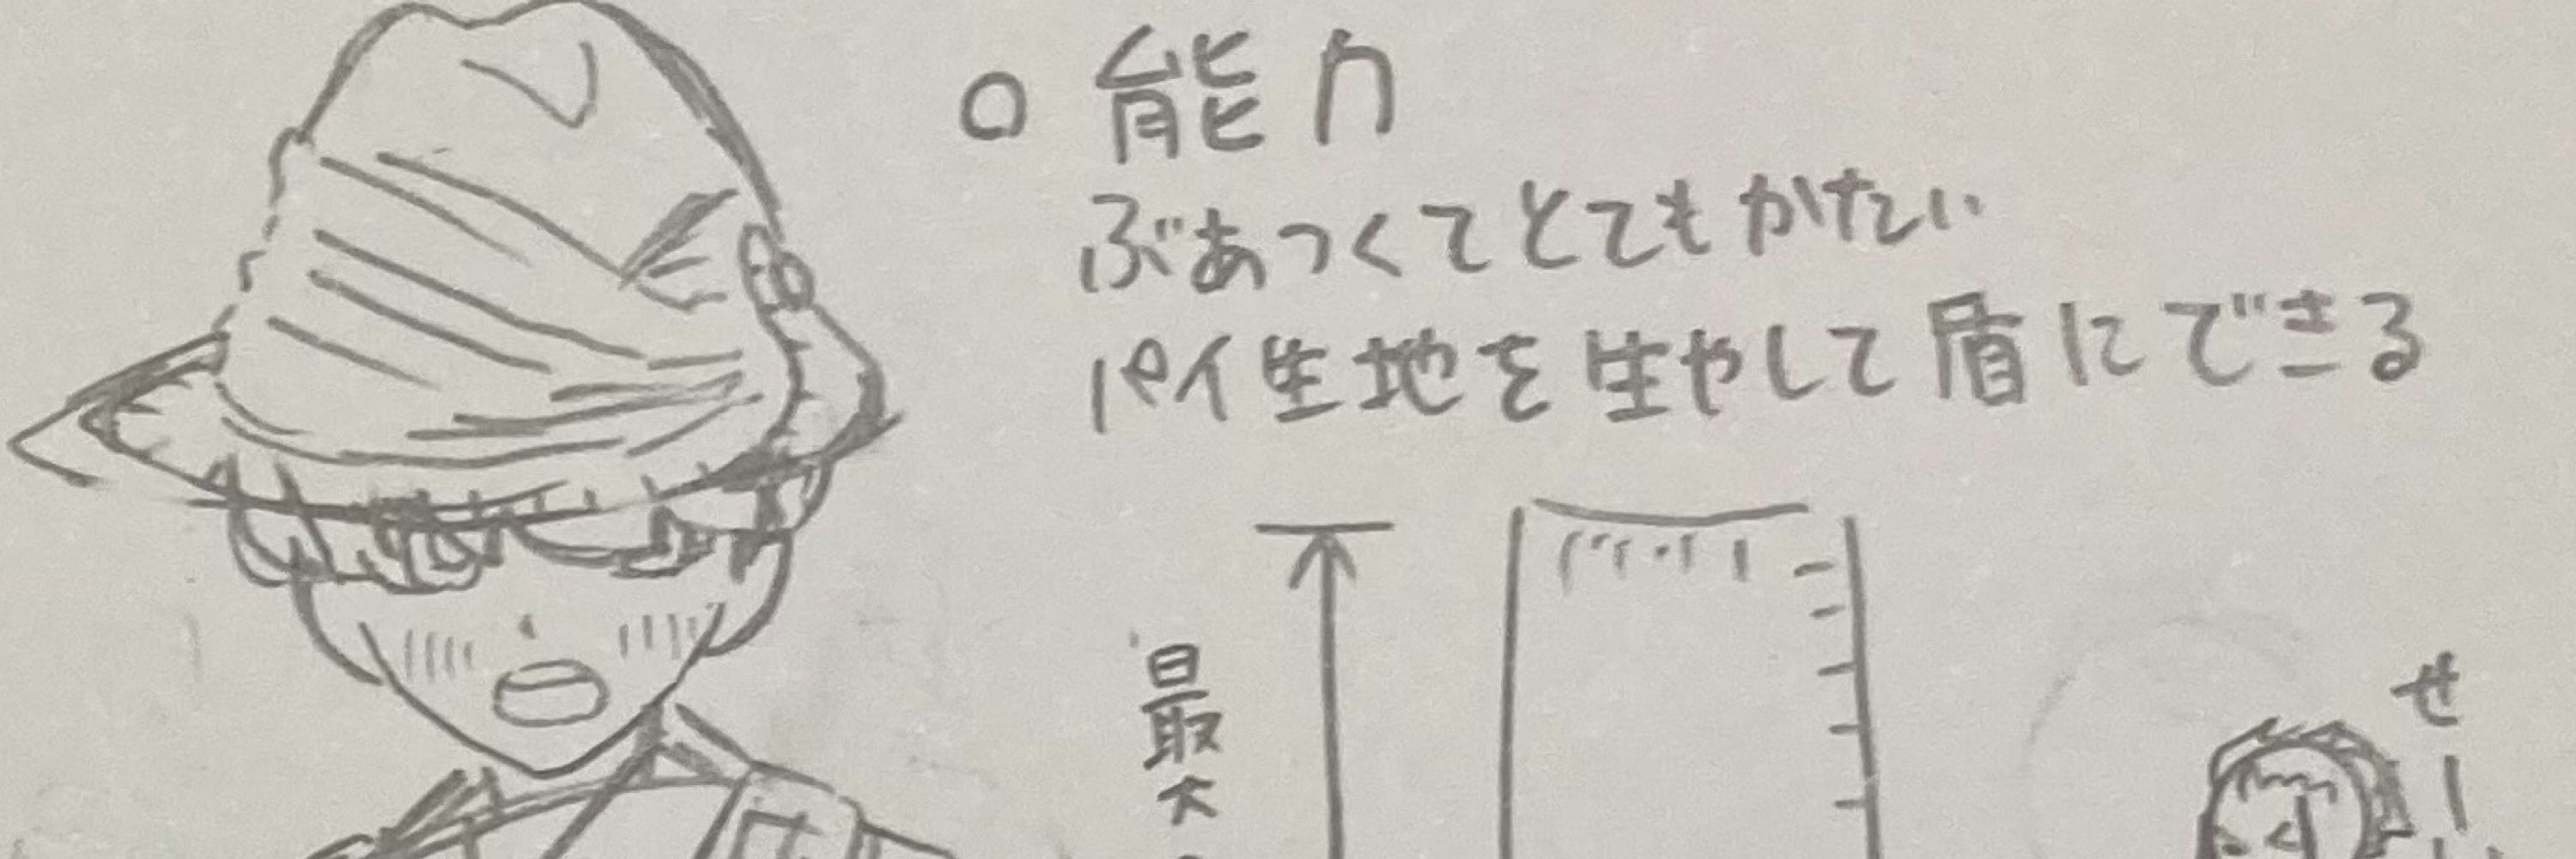 ○ 能力
ぶあつくてとてもかたい
パイ生地を生やして盾にできる
最大
せー